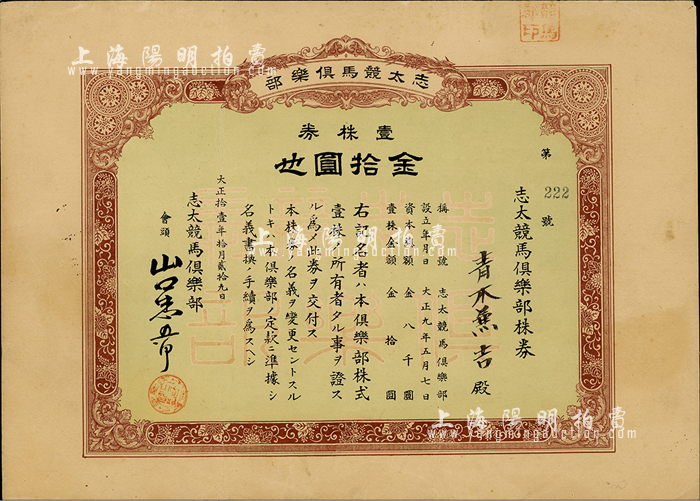 上海陽明拍賣
www.yangmingauction.com
志太競馬俱樂部
壹株券
金拾圓也
第222號
志太競馬俱樂部株券
青木 吉殿
稱號 志太競馬俱樂部
設立年月日 大正九年五月七日
資本總額 金八千圓
壹株金額 金拾圓
右記名者ハ本俱樂部株式
壹株ノ所有者タル事ヲ證ス
ル爲メ此券ヲ交付ス
本株券ノ名義ヲ變更セントスル
トキハ本俱樂部ノ定款ニ準據シ
名義書換ノ手續ヲ爲スヘシ
大正拾壹年拾月貳拾九日
志太競馬俱樂部
會頭 山口
上海陽明拍賣
www.yangmingauction.com